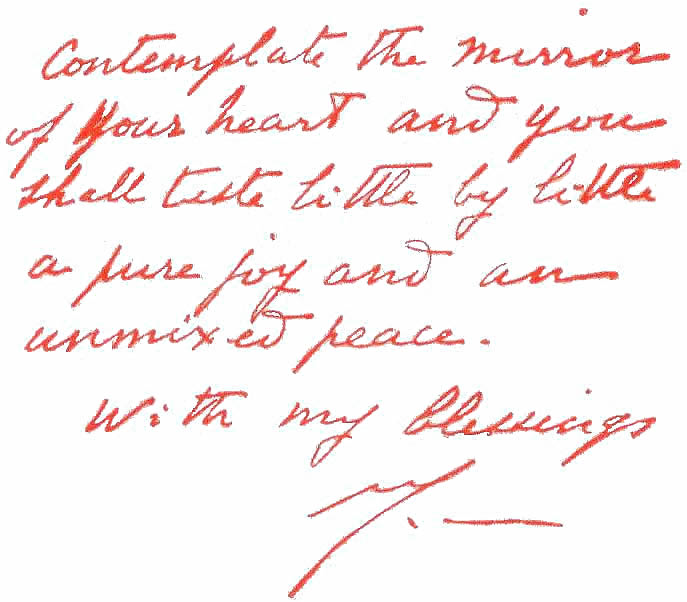 Contemplate the mirror
of your heart and you
shall teste little by little
a pure joy and an
unmixed peace.
With my blessings